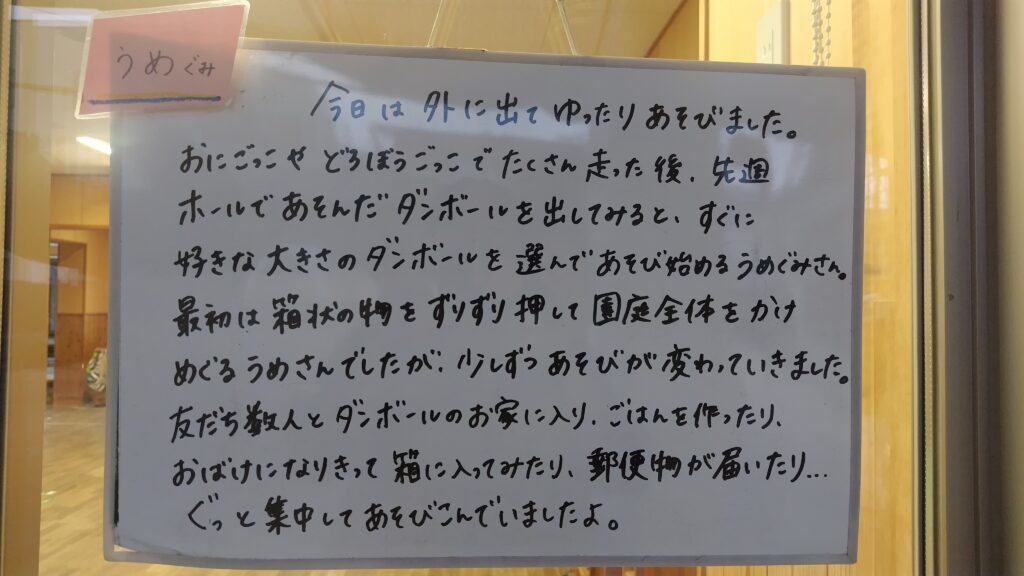 うめぐみ
今日は 外に出て ゆったり あそびました。
おにごっこや どろぼうごっこで たくさん 走った 後、先週
ホールであそんだ ダンボールを出してみると、すぐに
好きな 大きさの ダンボールを 選んであそび始める うめぐみさん。
最初は 箱状の物を ずりずり 押して 園庭全体を かけ
めぐる うめさんでしたが、少しずつ あそびが 変わっていきました。
友だち数人と ダンボールのお家に入り、ごはんを作ったり、
おばけになりきって 箱に入ってみたり、郵便物が届いたり…
ぐっと 集中して あそびこんでいましたよ。